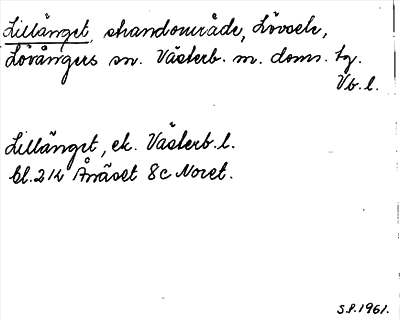 Lillänget, strandområde, Lövsele,
Lövångers sn. Västerb. m. doms. tg.
Vb. l.
Lillänget, ek. Västerb. l.
bl. 21 K Ånäset 8c Noret.
S.P. 1961.